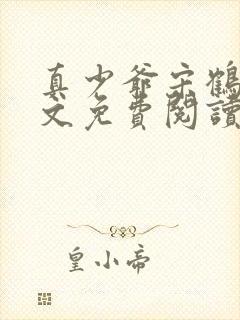 真少爺宋鶴
文免費閱讀
皇小帝